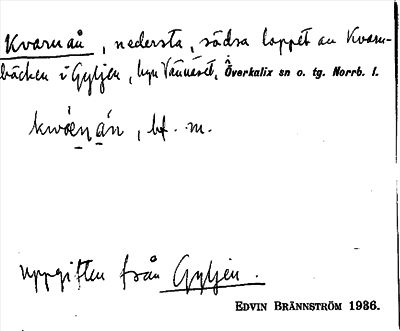 Kvarnån, nedersta, södra loppet av Kvarn-
bäcken i Gyljen, byn Vännäset, Överkalix sn o. tg. Norrb. l.
bf. m.
uppgiften från Gyljen.
EDVIN BRÄNNSTRÖM 1936.